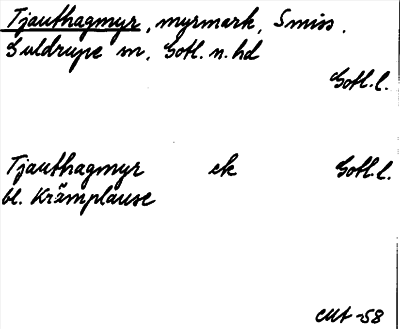 Tjauthagmyr, myrmark, Smiss,
Guldrupe sn, Gotl. n. hd
Gotl. l.
Tjauthagmyr ek Gotl. l.
bl. Krämplause
CMt -58